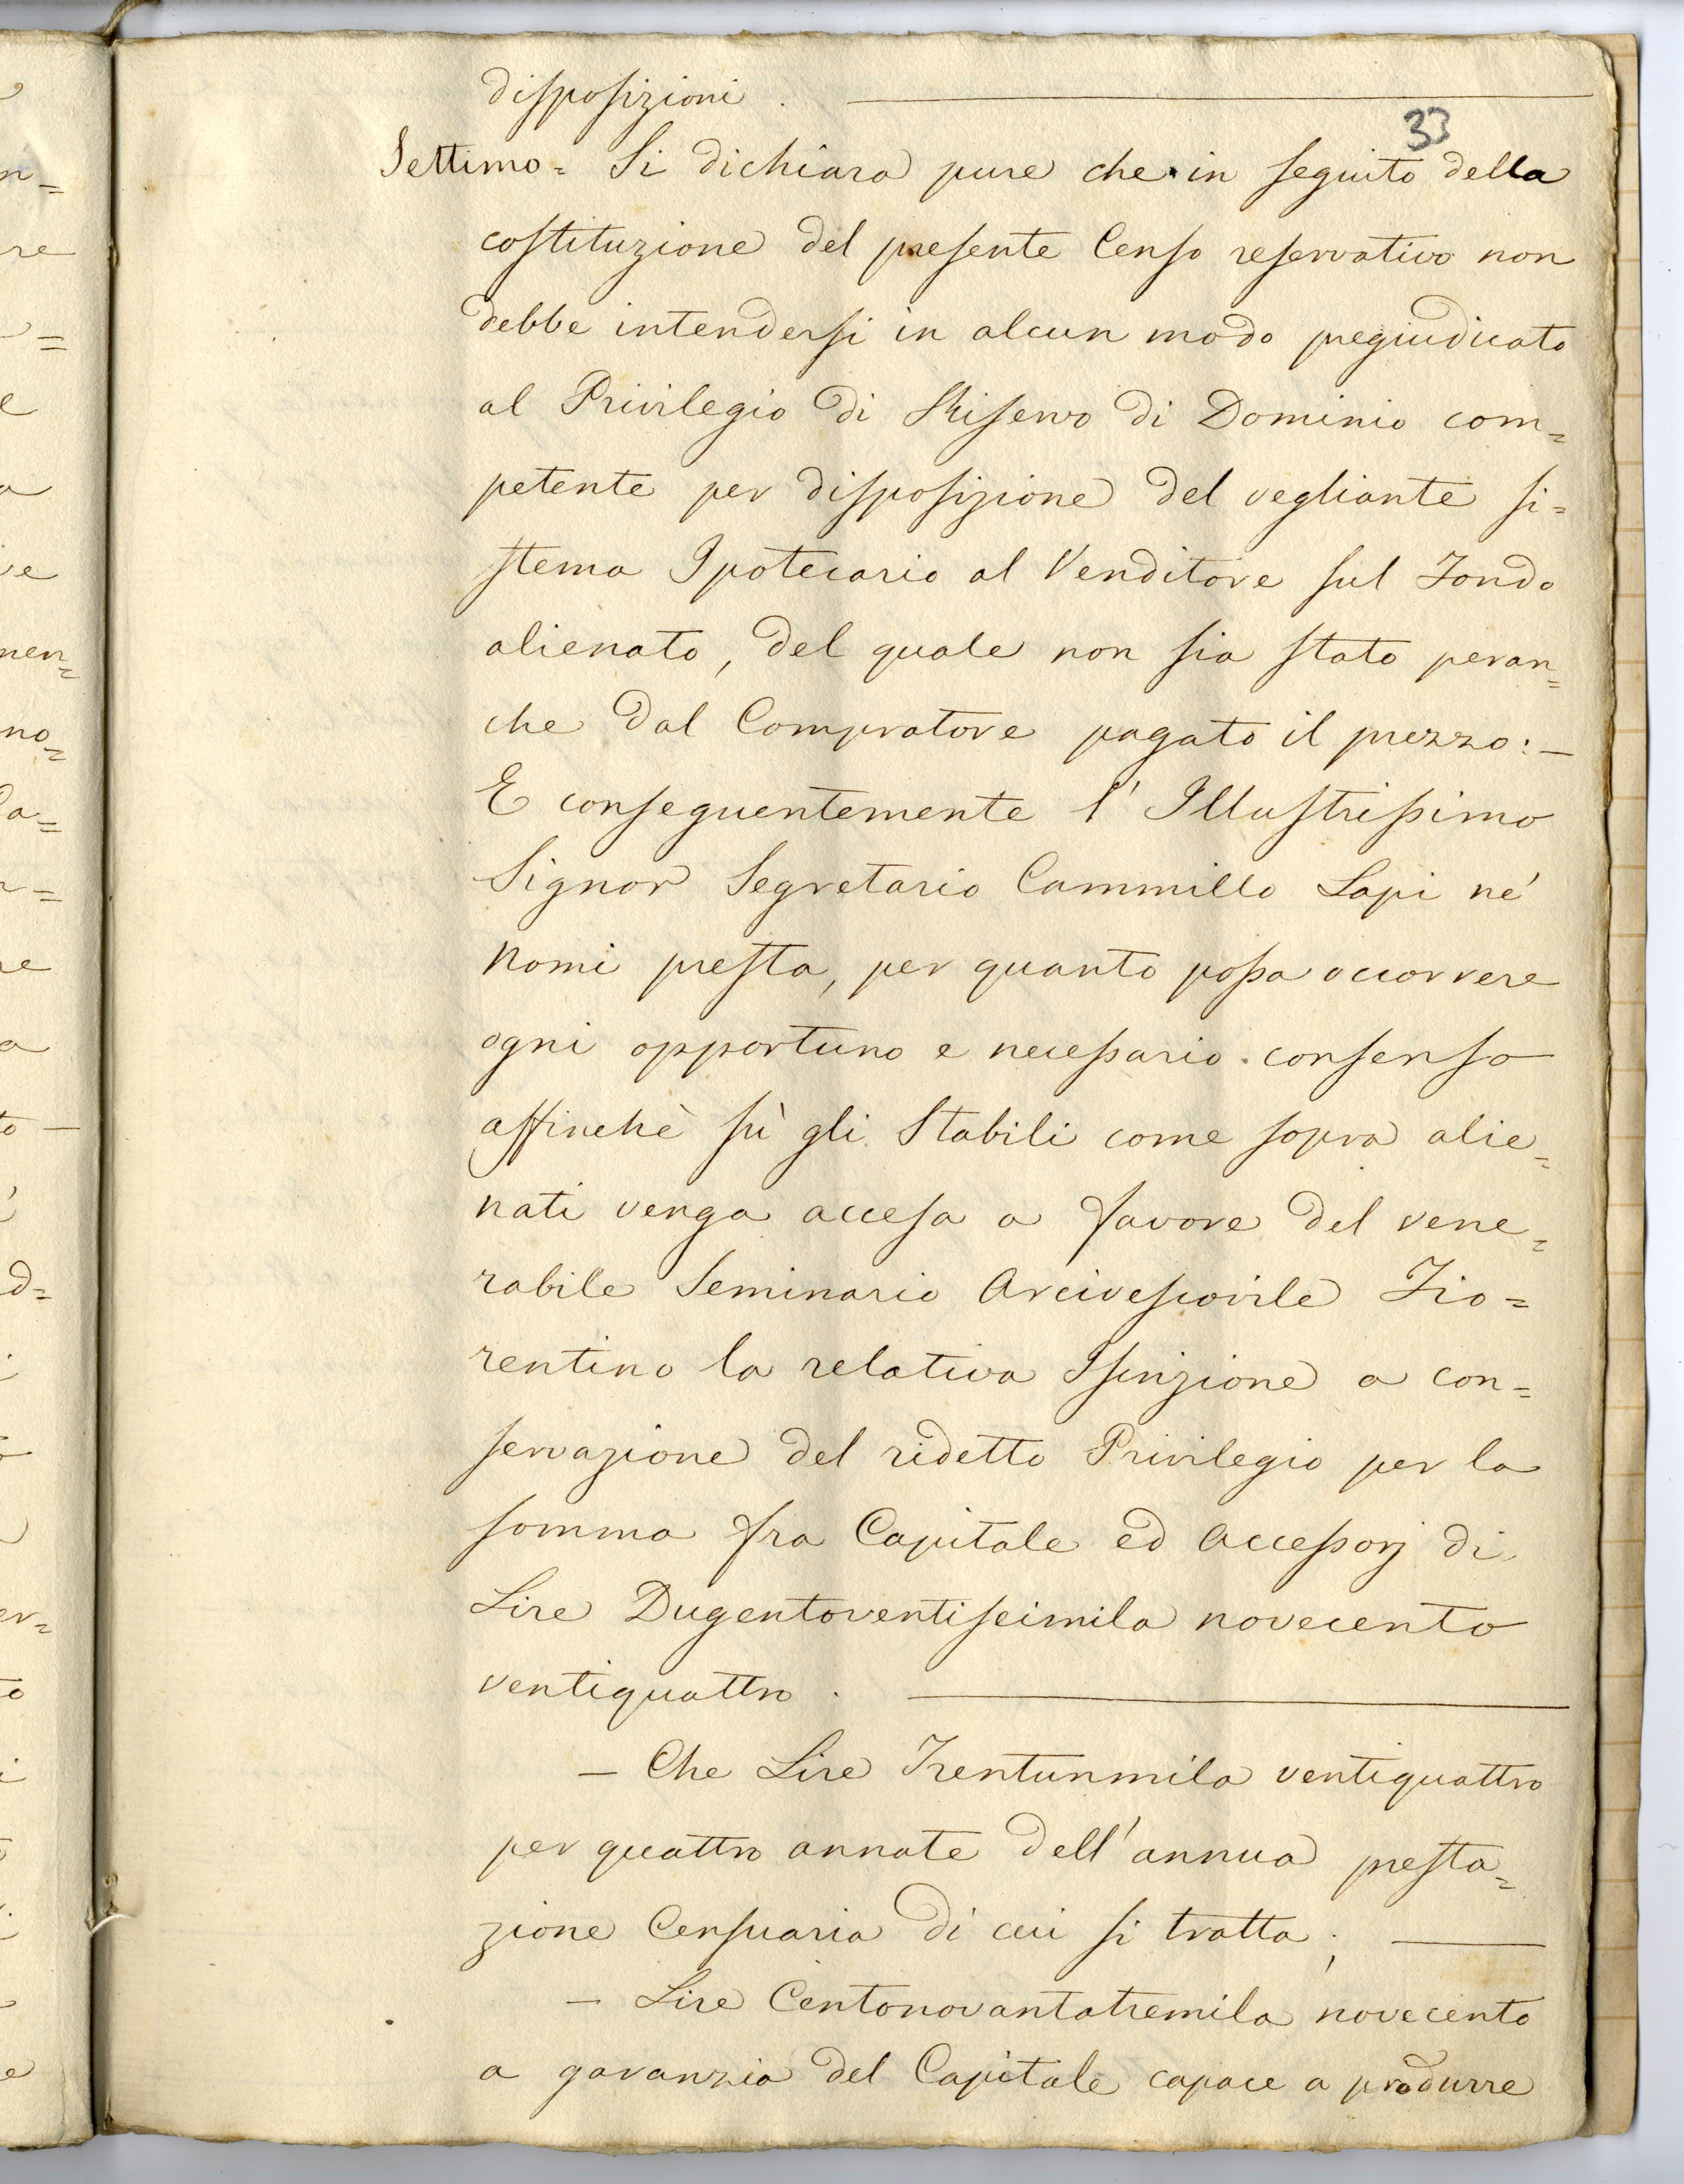 disposizioni .
33
Settimo = Si dichiara pure che in seguito della
costituzione del presente Censo reservativo non
debbe intendersi in alcun modo pregiudicato
al Privilegio di Riservo di Dominio com=
petente per disposizione del vegliante si=
stema Ipotecario al Venditore sul Fondo
alienato, del quale non sia stato peran=
che dal Compratore pagato il prezzo: —
E conseguentemente l' Illustrissimo
Signor Segretario Cammillo Lapi né
nomi presta, per quanto possa occorrere
ogni opportuno e necessario consenso
affinchè sù gli Stabili come sopra alie=
nati venga accesa a favore del vene=
rabile Seminario Arcivescovile Fio=
rentino la relativa Iscrizione a con=
servazione del ridetto Privilegio per la
somma fra Capitale ed Accessorj di
Lire Dugentoventiseimila novecento
ventiquattro .
— Che Lire Trentunmila ventiquattro
per quattro annate dell' annua presta=
zione Censuaria di cui si tratta ;
— Lire Centonovantatremila novecento
a garanzia del Capitale capace a produrre